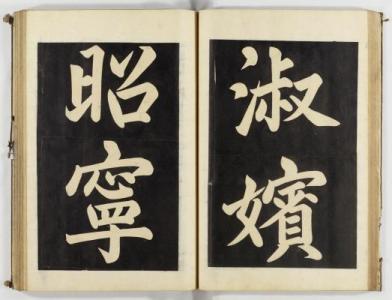 淑嬪
昭寧